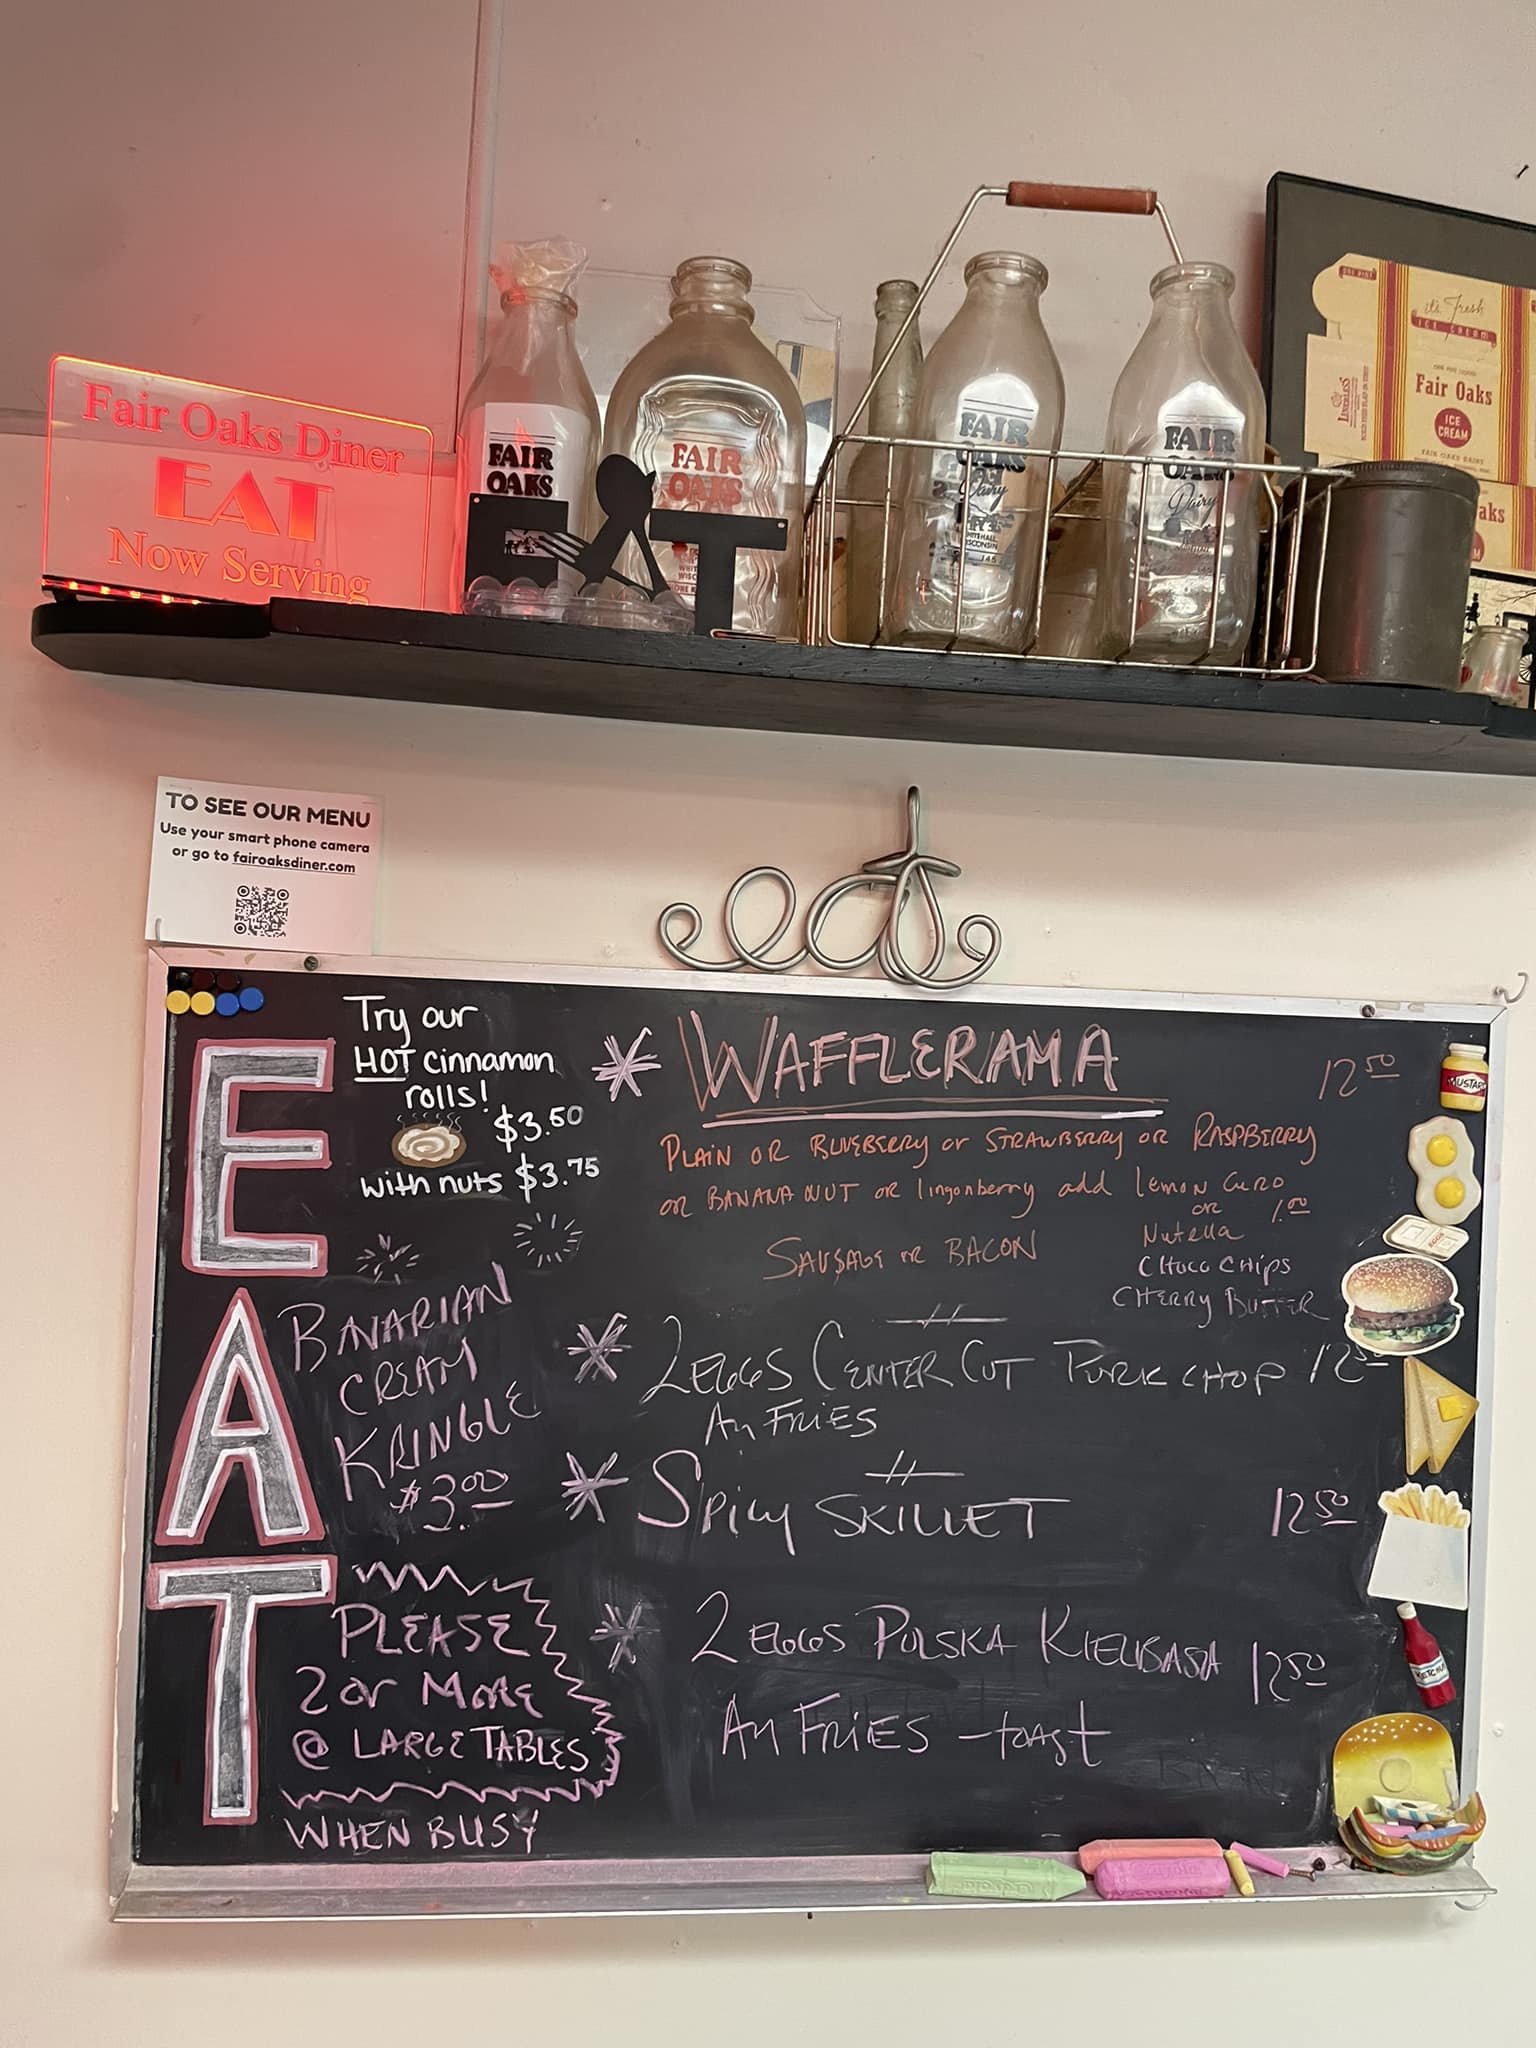 Fair Oaks Diner
EAT
Now Serving
FAIR
OAKS
FAIR
OAKS
WHIT
WISC
EAT
FAIR
OAKS
Dairy
WHITEHALL
WISCONSIN
FAIR
OAKS
Dairy
ONE PINT
it's Fresh
ICE CREAM
Fair Oaks
ICE
CREAM
FAIR OAKS DAIRY
aks
TO SEE OUR MENU
Use your smart phone camera
or go to fairoaksdiner.com
eat
EAT
Try our
HOT cinnamon
rolls!
$3.50
with nuts $3.75
BAVARIAN
CREAM
KRINGLE
$3.00
PLEASE
2 or MORE
@ LARGE TABLES
WHEN BUSY
* WAFFLERAMA 12 50
PLAIN OR BLUEBERRY or STRAWBERRY OR RASPBERRY
OR BANANA NUT OR lingonberry add lemon CURD
OR 1.00
Nutella
SAUSAGE OR BACON
CHOCO CHIPS
CHERRY BUTTER
* 2 EGGS CENTER CUT PORK CHOP 12 50
AM FRIES
* SPICY SKILLET 12 50
* 2 EGGS POLSKA KIELIBASA 12 50
AM FRIES - toast
MUSTARD
EGGS
KETCHUP